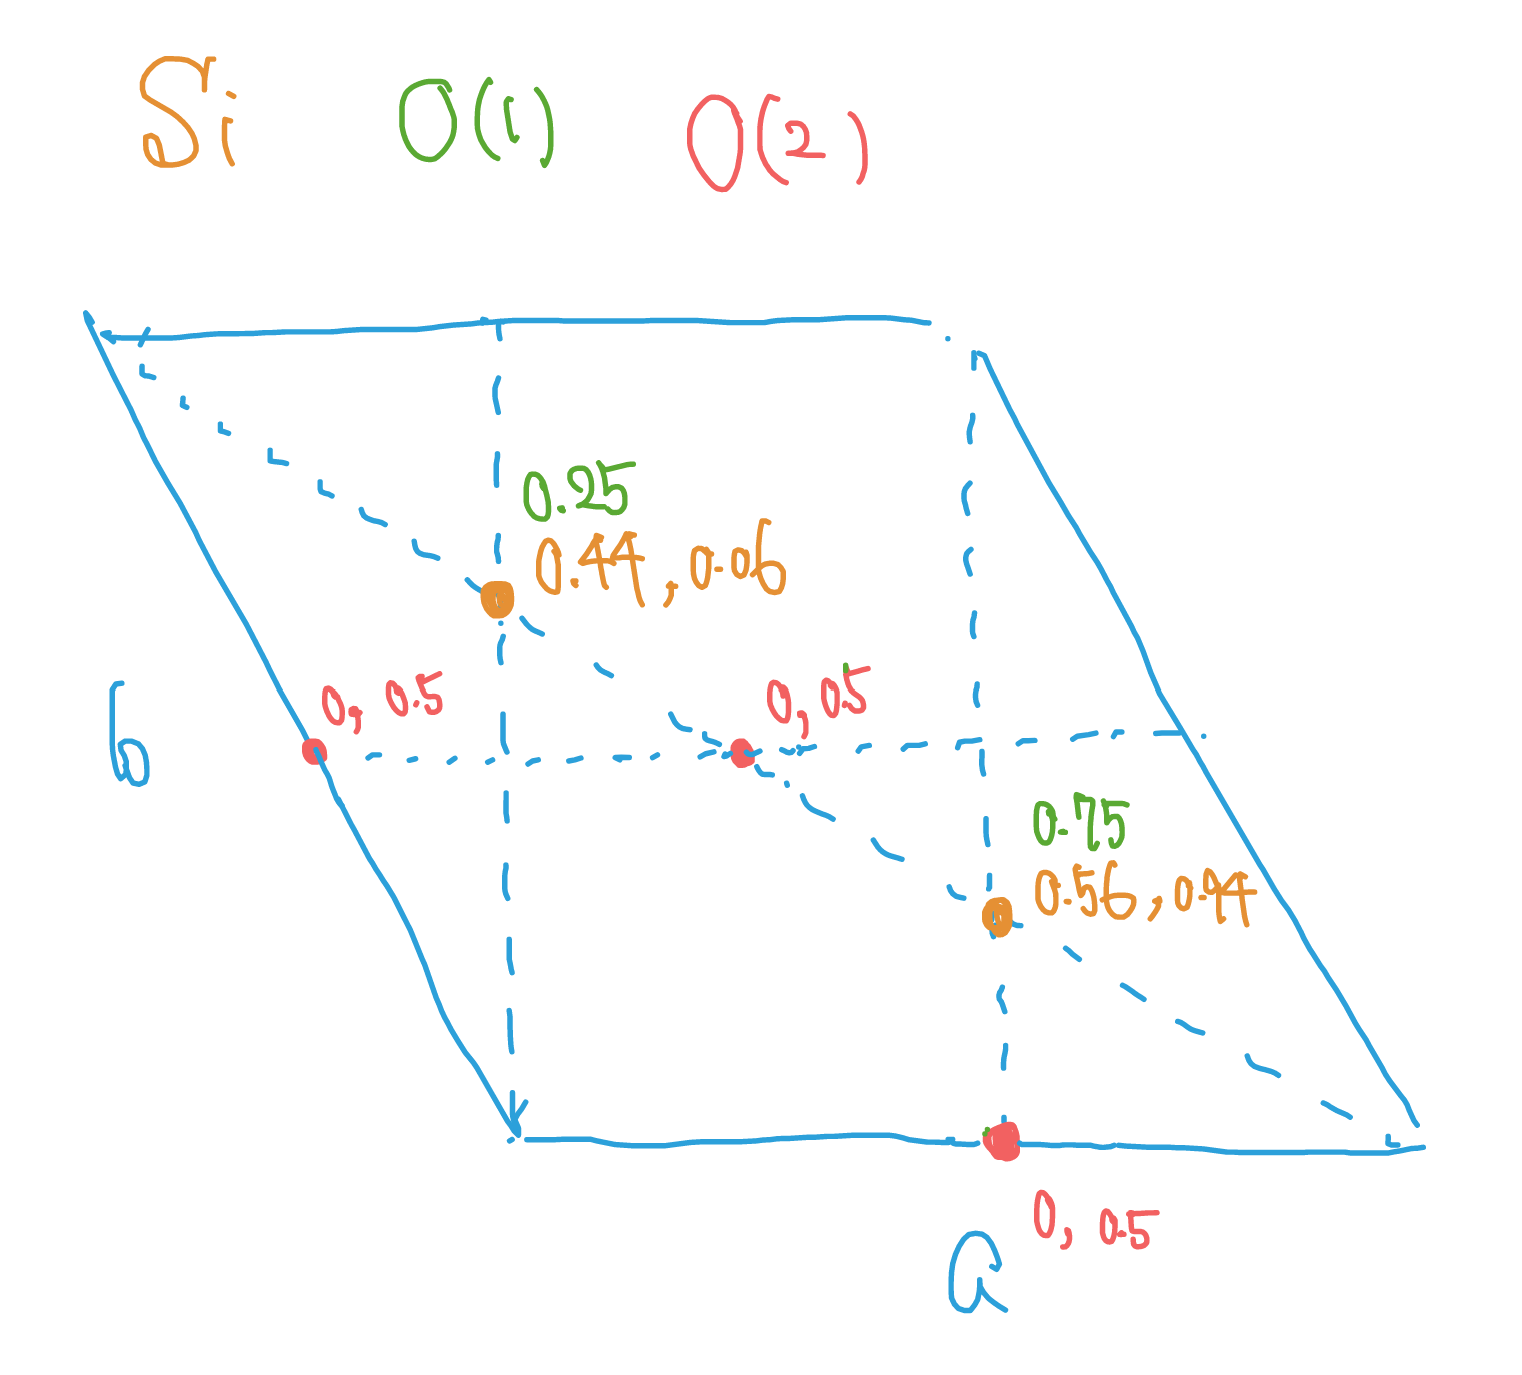 Si O(1) O(2)
0.25
0.44, 0.06
0, 0.5
0, 05
b
0.75
0.56, 0.94
0, 0.5
a